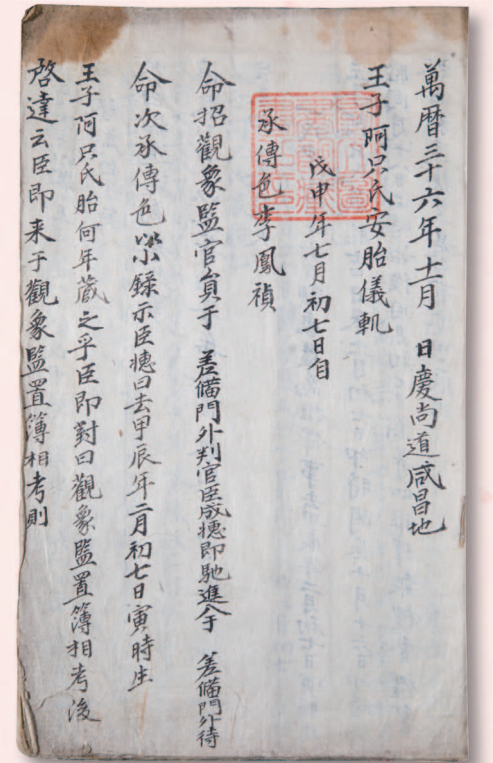 萬曆三十六年十一月　日慶尚道咸昌地
王子阿只氏安胎儀軌
戊申年七月初七日自
承傳色李鳳禎
命招觀象監官員于　差備門外判官臣成憓即馳進今于　差備門外待
命次承傳色以小錄示臣憓曰去甲辰年二月初七日寅時生
王子阿只氏胎何年藏之乎臣即對曰觀象監置簿相考後
啓達云臣即来于觀象監置簿相考則